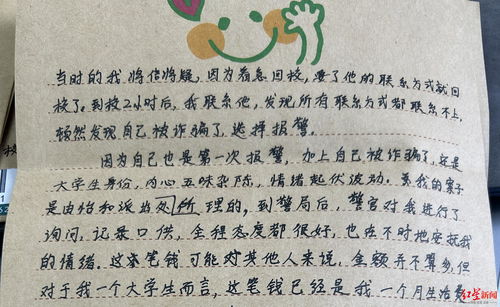 当时的我将信将疑，因为着急回校，要了他的联系方式就回
校了。到校2小时后，我联系他，发现所有联系方式都联系不上，
顿然发现自己被诈骗了，选择报警。
因为自己也是第一次报警，加上自己被诈骗了，还是
大学生身份，内心五味杂陈，情绪起伏波动。我的案子
是由怡和派出处所理的，到警局后，警官对我进行了
询问，记录口供，全程态度都很好，也在不时地安抚我
的情绪。这笔钱可能对其他人来说，金额并不算多，但
对于我一个大学生而言，这笔钱已经是我一个月生活费
红星新闻